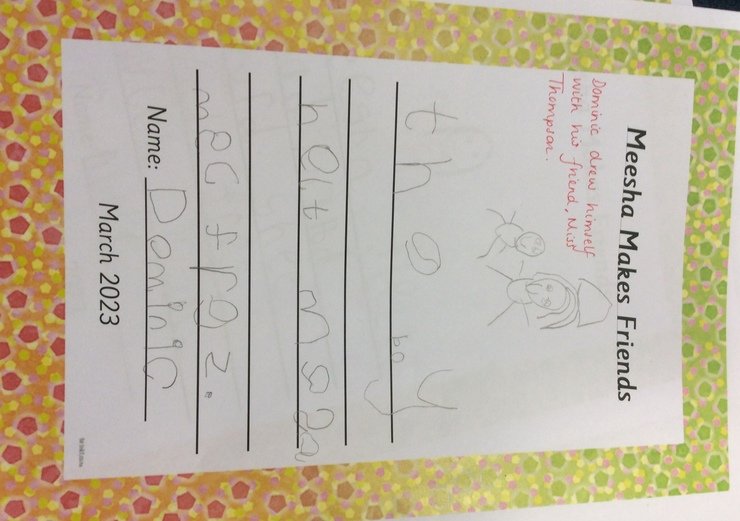 Meesha Makes Friends
Dominic drew himself
with his friend, Miss
Thompson.
thay
helt
mec frez.
Name: Dominic
March 2023